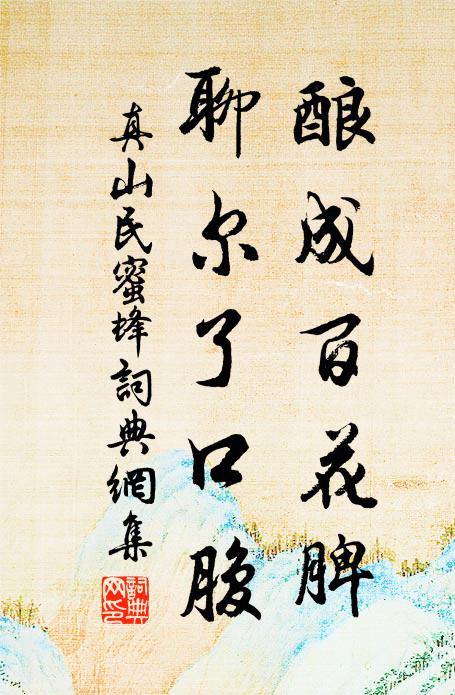 酿成百花脾
聊尔了口腹
真山民蜜蜂詞典網集
詞典